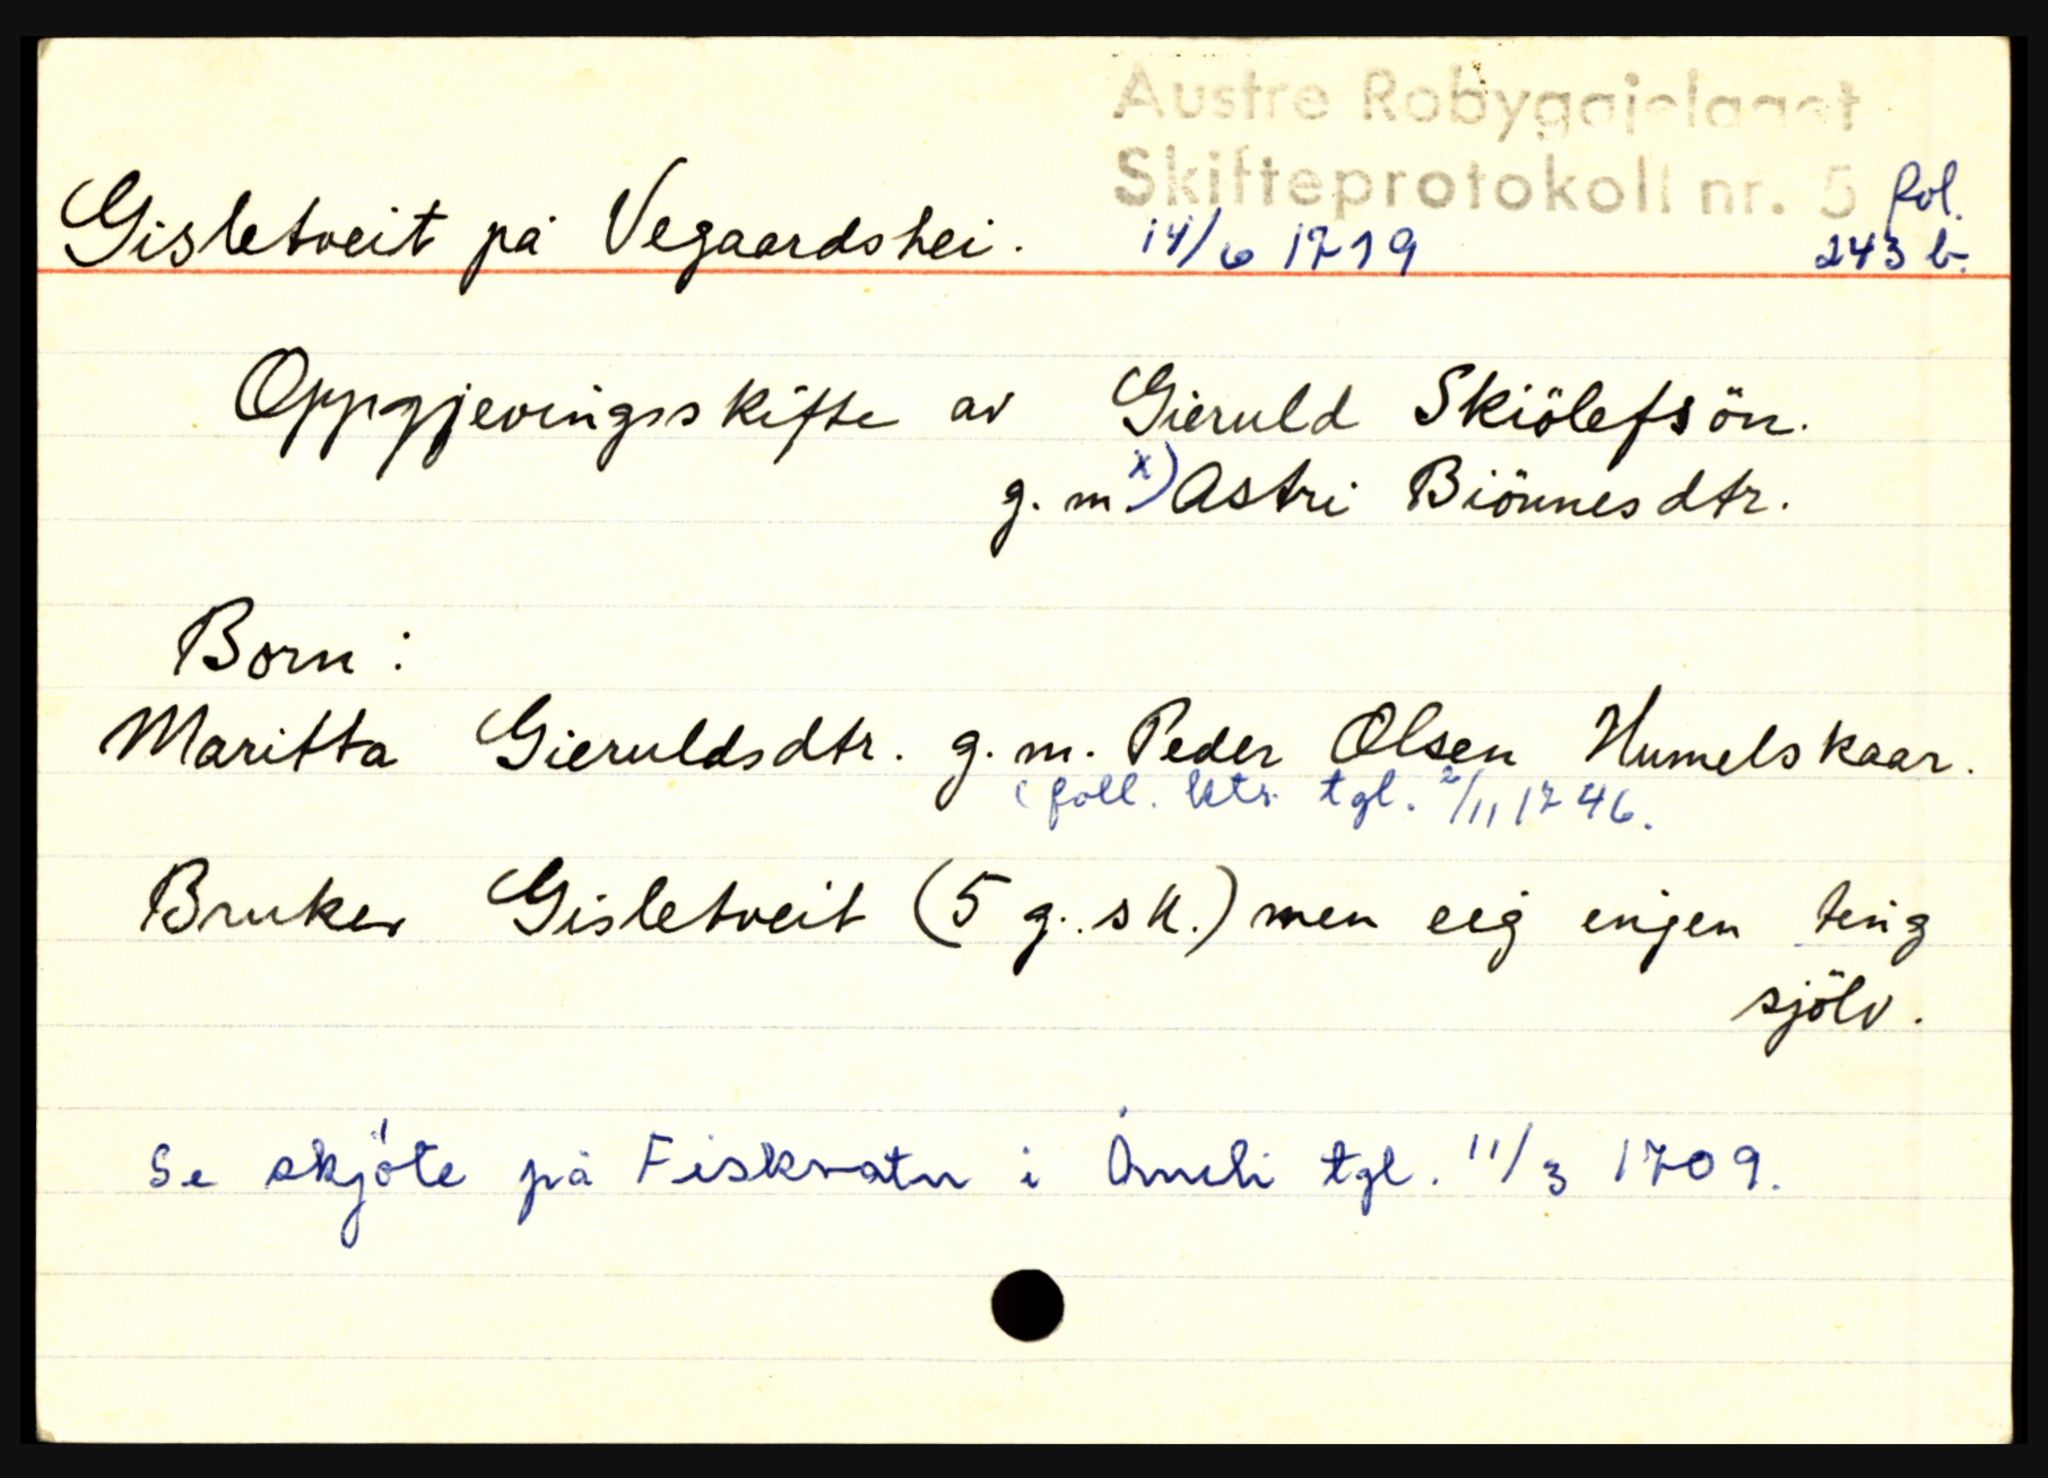 Austre Robyggjelaget
Skifteprotokoll nr. 5 fol.
Gisletveit på Vegaardshei. 14/6 1719 243 b.
Oppgjevingsskifte av Gieruld Skiölefsön.
g. m. x) Astri Biönnesdtr.
Born:
Maritta Gieruldsdtr. g. m. Peder Olsen Humelskaar.
(foll. ktr. tgl. 2/11 1746.
Bruker Gisletveit (5 g. sk.) men eig eigen teig
sjölv.
Se skjöte på Fiskvatn i Åmli tgl. 11/3 1709.